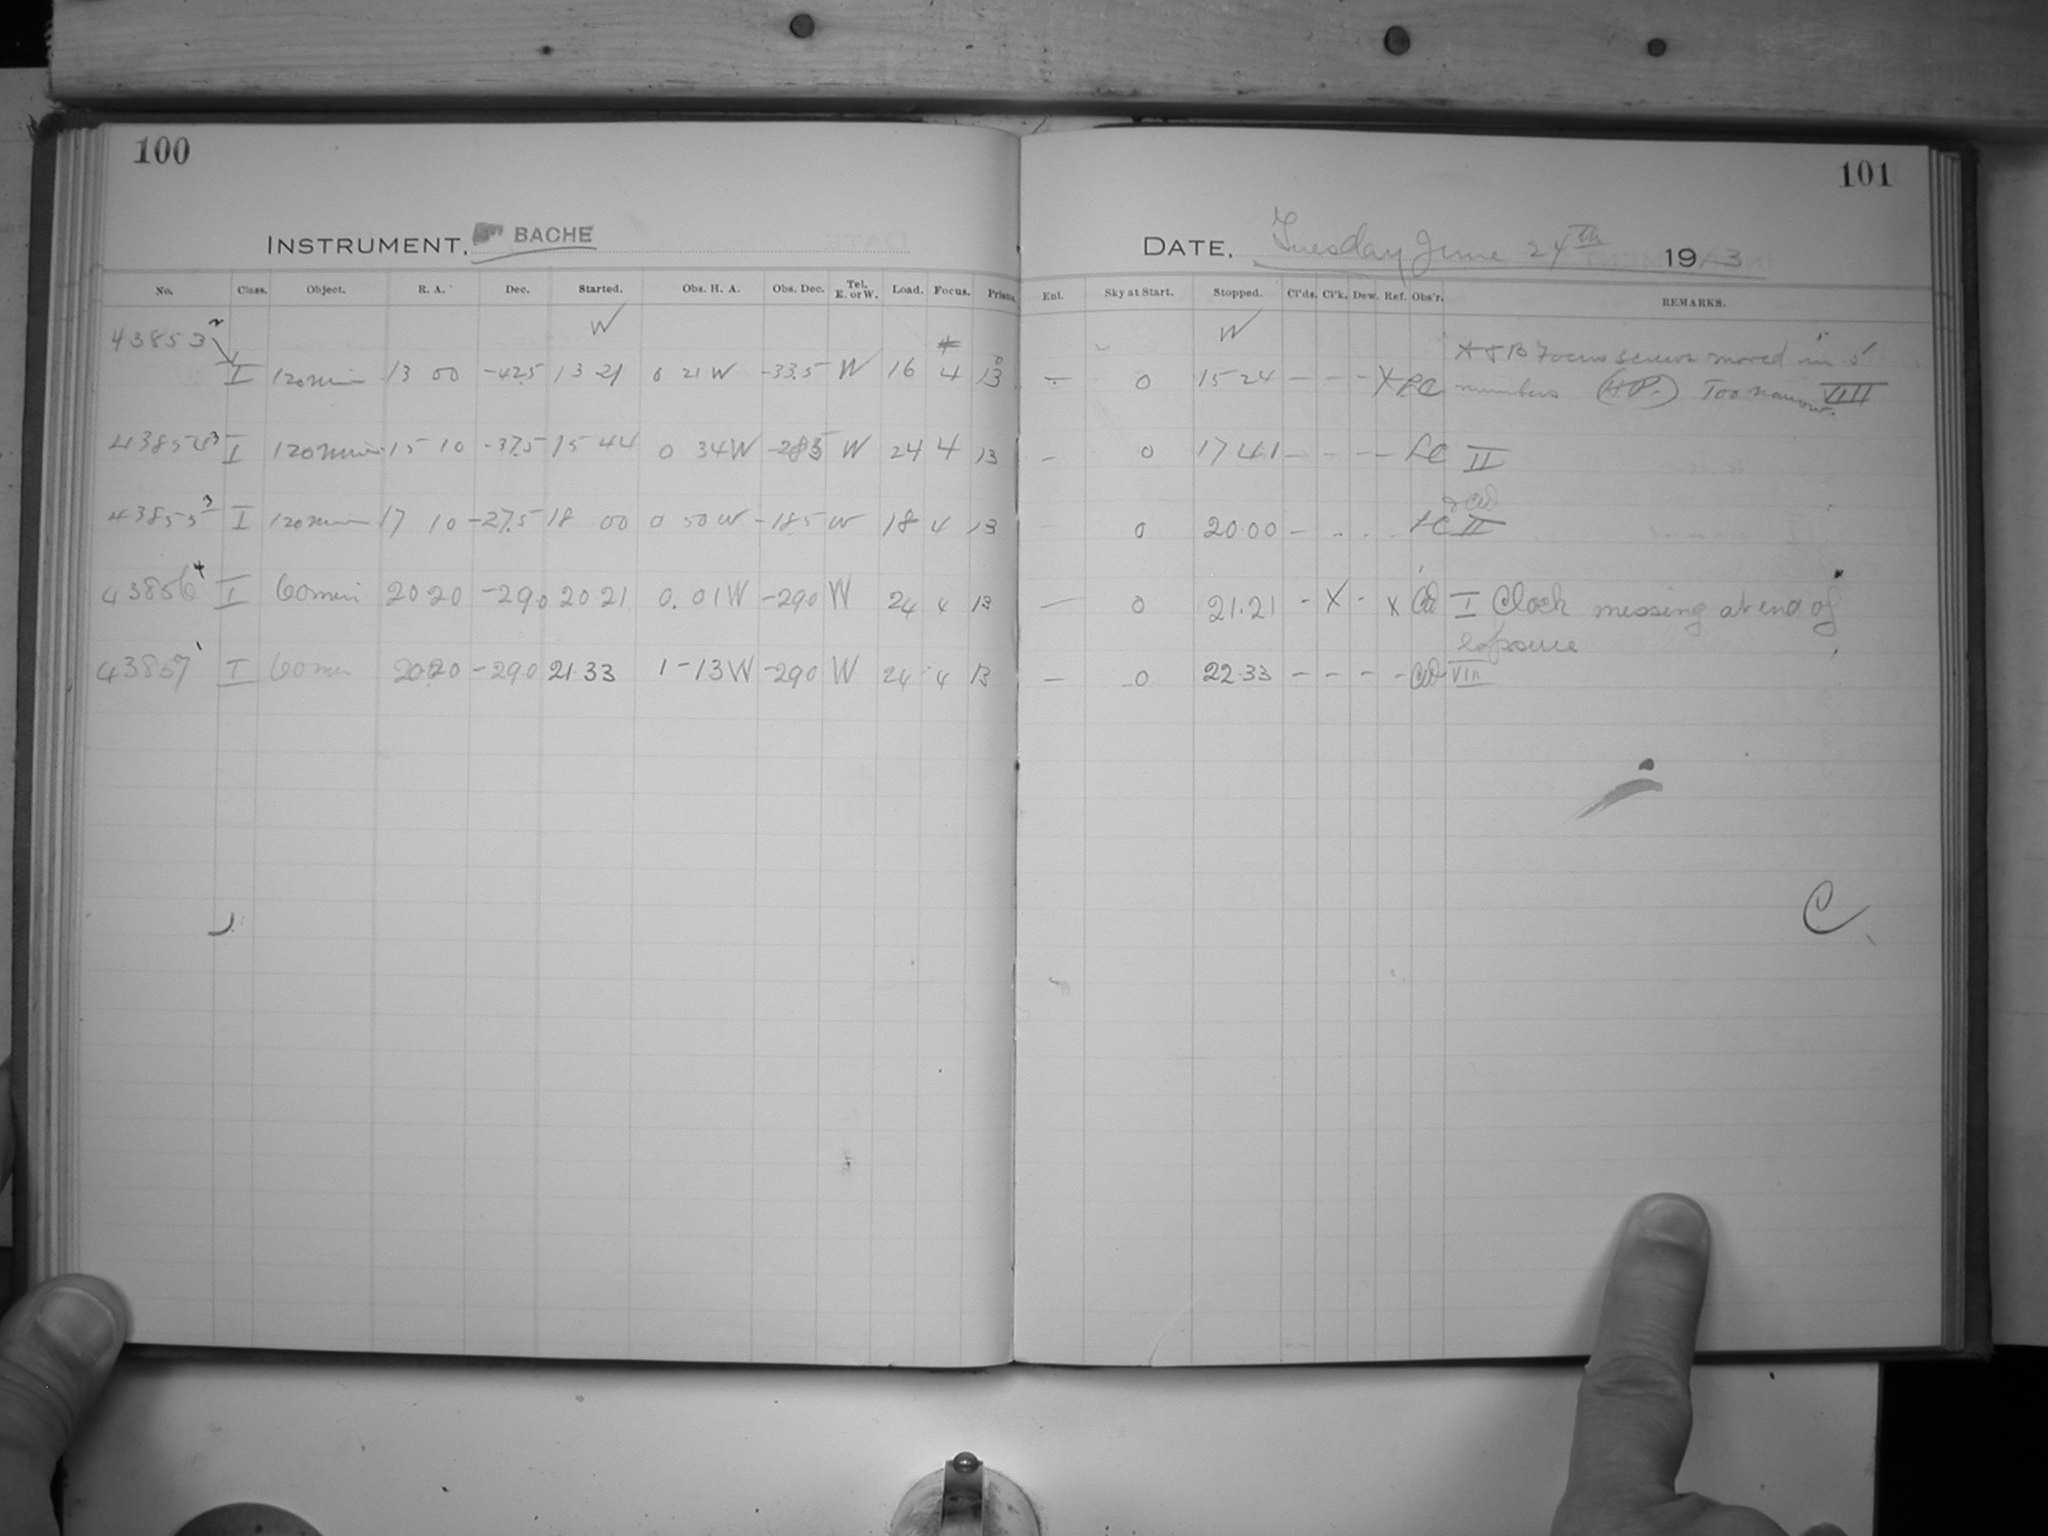 100
INSTRUMENT. BACHE
No. Class. Object. R. A. Dec. Started. Obs. H. A. Obs. Dec. Tel. E. or W. Load. Focus. Prism.
W
43853 2
I 120 min 13 00 -42.5 13 21 0 21 W -33.5 W 16 4 13
43854 3 I 120 min 15 10 -37.5 15 44 0 34 W -28.5 W 24 4 13
43855 3 I 120 min 17 10 -27.5 18 00 0 50 W -18.5 W 18 4 13
43856 4 I 60 min 20 20 -29.0 20 21 0.01 W -29.0 W 24 4 13
43857 1 I 60 min 20 20 -29.0 21.33 1-13 W -29.0 W 24 4 13
101
DATE. Tuesday June 24th 1913
Enl. Sky at Start. Stopped. Cl'ds. Cl'k. Dew. Ref. Obs'r. REMARKS.
W
A & B Focus screws moved in 5
- 0 15 24 - - - X LC numbers (H.P.) Too narrow. VIII
- 0 17 41 - - - - LC II
& CW
- 0 20.00 - - - - LC II
- 0 21.21 - X - X CW I Clock missing at end of
exposure
- 0 22.33 - - - - CW VIII
C